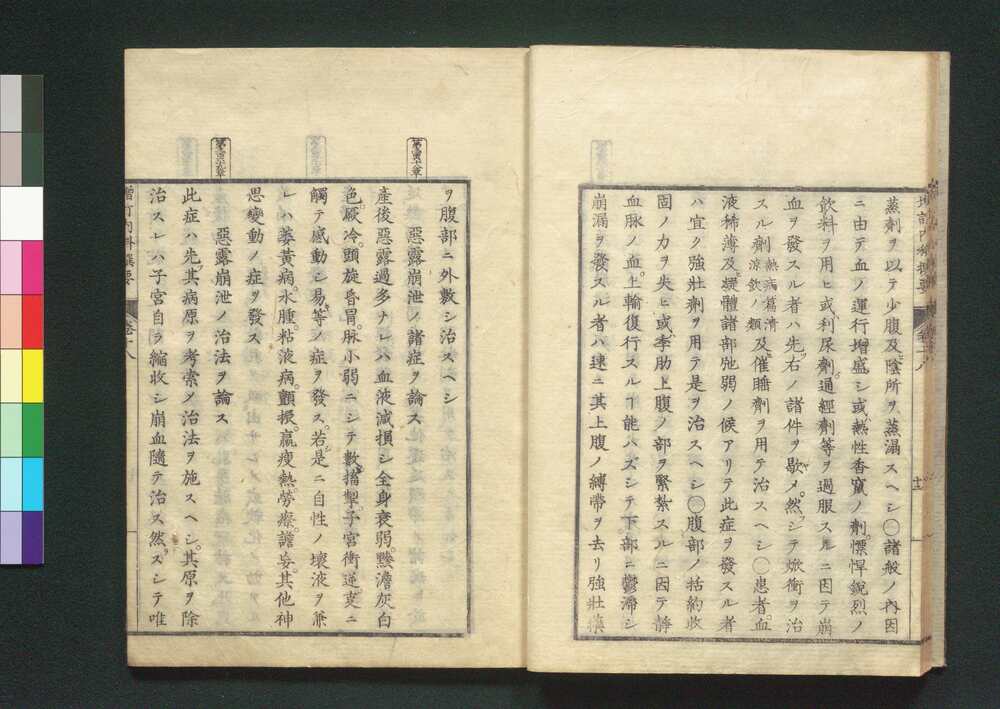 蒸剤ヲ以テ少腹及陰所ヲ蒸漏スヘシ〇諸般ノ內因
ニ由テ血ノ運行增盛シ或熱性香竄ノ劑慓悍銳烈ノ
飲料ヲ用ヒ或利尿劑通經劑等ヲ過服スルニ因テ崩
血ヲ發スル者ハ先右ノ諸件ヲ歇メ然シテ焮衝ヲ治
スル劑熱病篇清涼飲ノ類及催睡劑ヲ用テ治スヘシ〇患者血
液稀薄及纖體諸部弛弱ノ候アリテ此症ヲ發スル者
ハ宜ク強壯劑ヲ用テ是ヲ治スヘシ〇腹部ノ括約收
固ノ力ヲ失ヒ或季肋上腹ノ部ヲ緊紮スルニ因テ靜
血脉ノ血上輸復行スルヿ能ハズシテ下部ニ鬱滯シ
崩漏ヲ發スル者ハ速ニ其上腹ノ縛帶ヲ去リ強壯
ヲ腹部ニ外敷シ治スヘシ
惡露崩泄ノ諸症ヲ論ス
產後惡露過多ナレハ血液減損シ全身衰弱黲澹灰白
色厥冷頭旋昏冒脉小弱ニシテ數搐掣子宮衝逆支ニ
觸テ感動シ易等ノ症ヲ發ス若是ニ自性ノ壞液ヲ兼
レハ萎黃病水腫粘液病顫振羸瘦熱勞瘵譫妄其他神
思變動ノ症ヲ發ス
惡露崩泄ノ治法ヲ論ス
此症ハ先其病原ヲ考索メ治法ヲ施スヘシ其原ヲ除
治スレハ子宮自ラ縮收シ崩血隨テ治ス然ズシテ唯